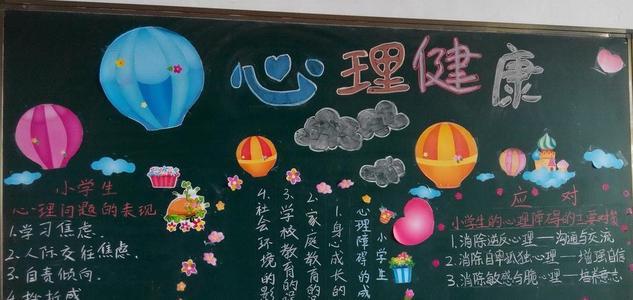 心理健康
小学生
心理问题的表现
1.学习焦虑
2.人际交往焦虑.
3.自责倾向.
小学生
心理障碍的成
1.身心成长的
2.家庭教育的
3.学校教育的
4.社会环境的影
应对
小学生的心理障碍的主要对策
1.消除逆反心理—沟通与交流
2.消除自卑孤独心理—增强自信
3.消除敏感与脆心理—培养意志